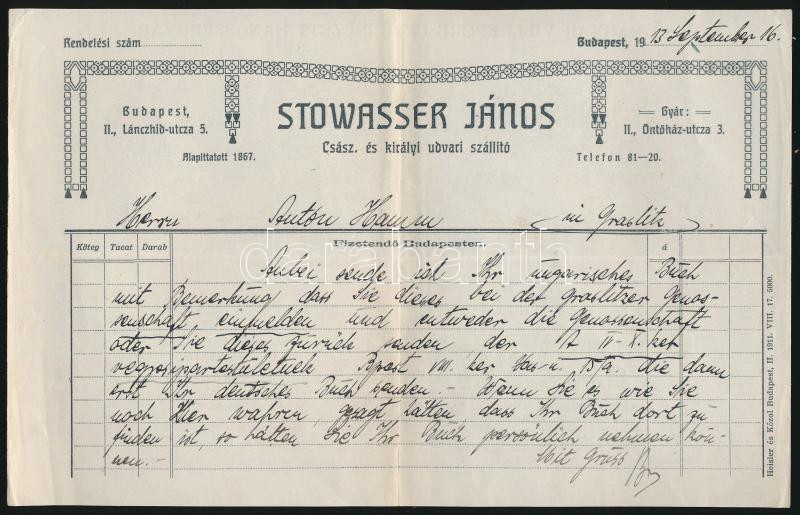 Rendelési szám
Budapest, 19 13 September 16.
Budapest,
II., Lánczhíd-utcza 5.
Alapíttatott 1867.
STOWASSER JÁNOS
Csász. és királyi udvari szállító
Gyár:
II., Öntőház-utcza 3.
Telefon 81-20.
Herrn Anton Hamm in Graslitz
Köteg Tucat Darab Fizetendő Budapesten. á
darabanth
Anbei sende ich Ihr ungarisches Buch
mit Bemerkung dass Sie dieses bei der Graslitzer Genos-
senschaft einmelden und entweder die Genossenschaft
oder Sie dieses zurück senden der IV-X. ker
Bpest VIII. ker Vas-u. 15/a. die dann
erst Ihr deutsches Buch senden.- Wenn Sie es wie Sie
noch hier waren, gesagt hätten dass Ihr Buch dort zu
finden ist, so hätten Sie Ihr Buch persönlich nehmen kön-
nen.-
Mit Gruss
Heisler és Kózol Budapest, II. 1911. VIII. 17. 5000.